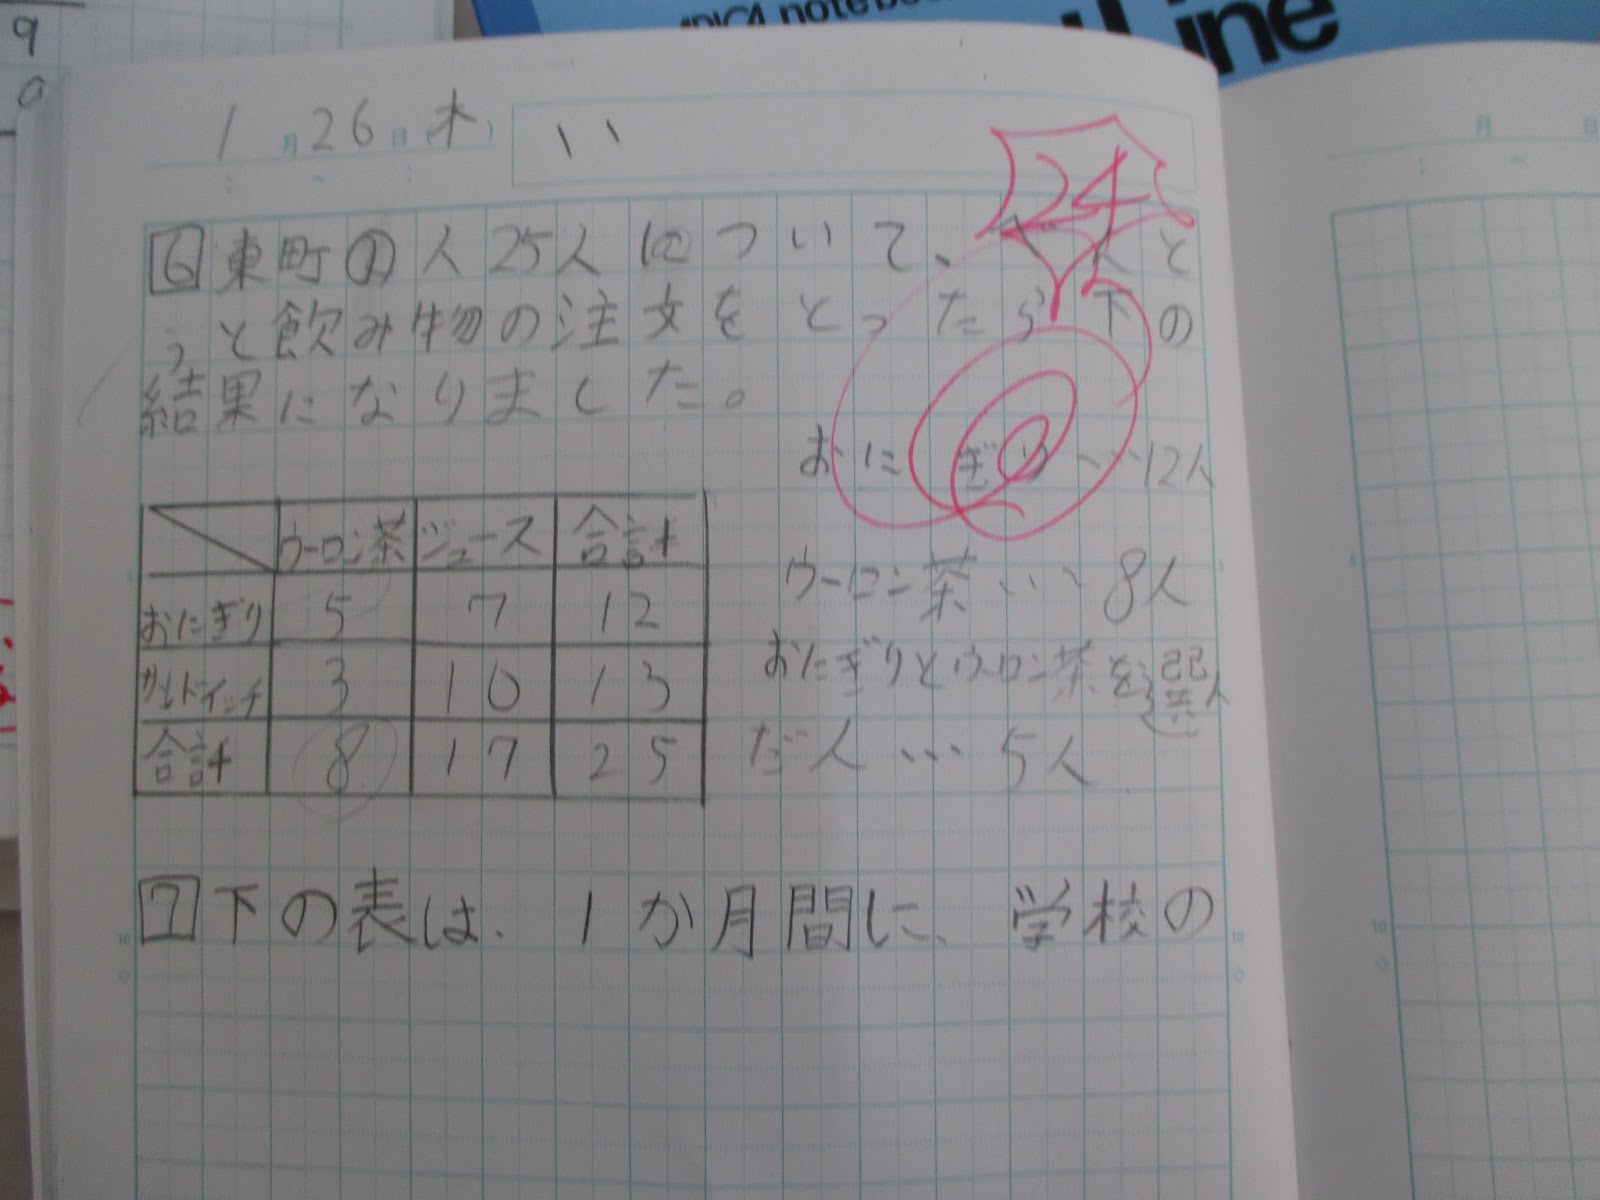 9
0
Line
1月26日(木)
い
24
6 東町の人25人について、べんと
うと飲み物の注文をとったら下の
結果になりました。
おにぎり…12人
ウーロン茶 ジュース 合計
おにぎり 5 7 12
サンドイッチ 3 10 13
合計 8 17 25
ウーロン茶…8人
おにぎりとウーロン茶を選ん
だ人…5人
7 下の表は、1か月間に、学校の
月 日
10
10